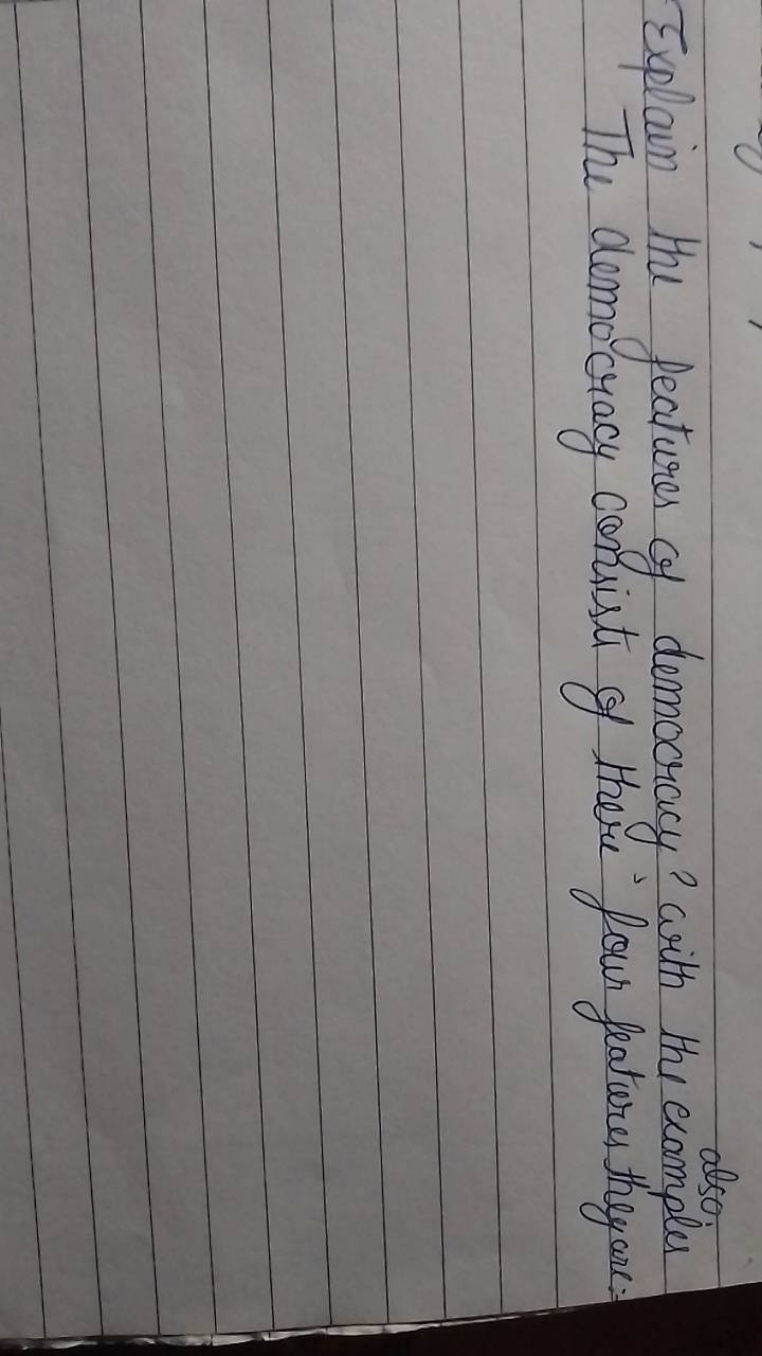 Explain the features of democracy? with the examples also.
The democracy consists of there four features they are:-